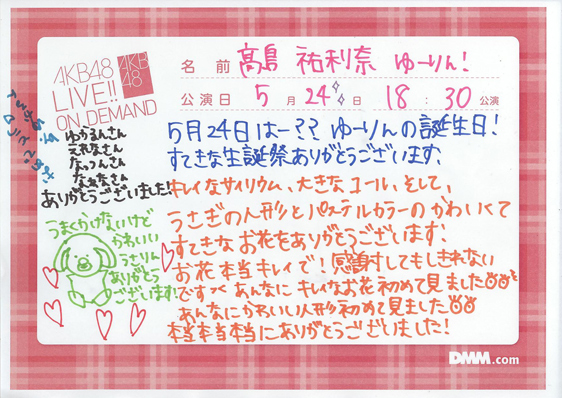 AKB48
LIVE!!
ON DEMAND
AKB
48
名前 高島 祐利奈 ゆーりん!
公演日 5月24日 18:30公演
5月24日はー??ゆーりんの誕生日!
すてきな生誕祭ありがとうございます。
キレイなサイリウム、大きなコール、そして、
うさぎの人形とパステルカラーのかわいくて
すてきなお花をありがとうございます!
お花本当キレイで!感謝してもしきれない
です〜あんなにキレイなお花初めて見ました
あんなにかわいい人形初めて見ました
本当本当本当にありがとうございました!
ゆかるんさん
えれなさん
なっつんさん
なぁなさん
ありがとうございました!
うまくかけないけど
かわいい
うさりん
ありがとう
ございます!
DMM.com